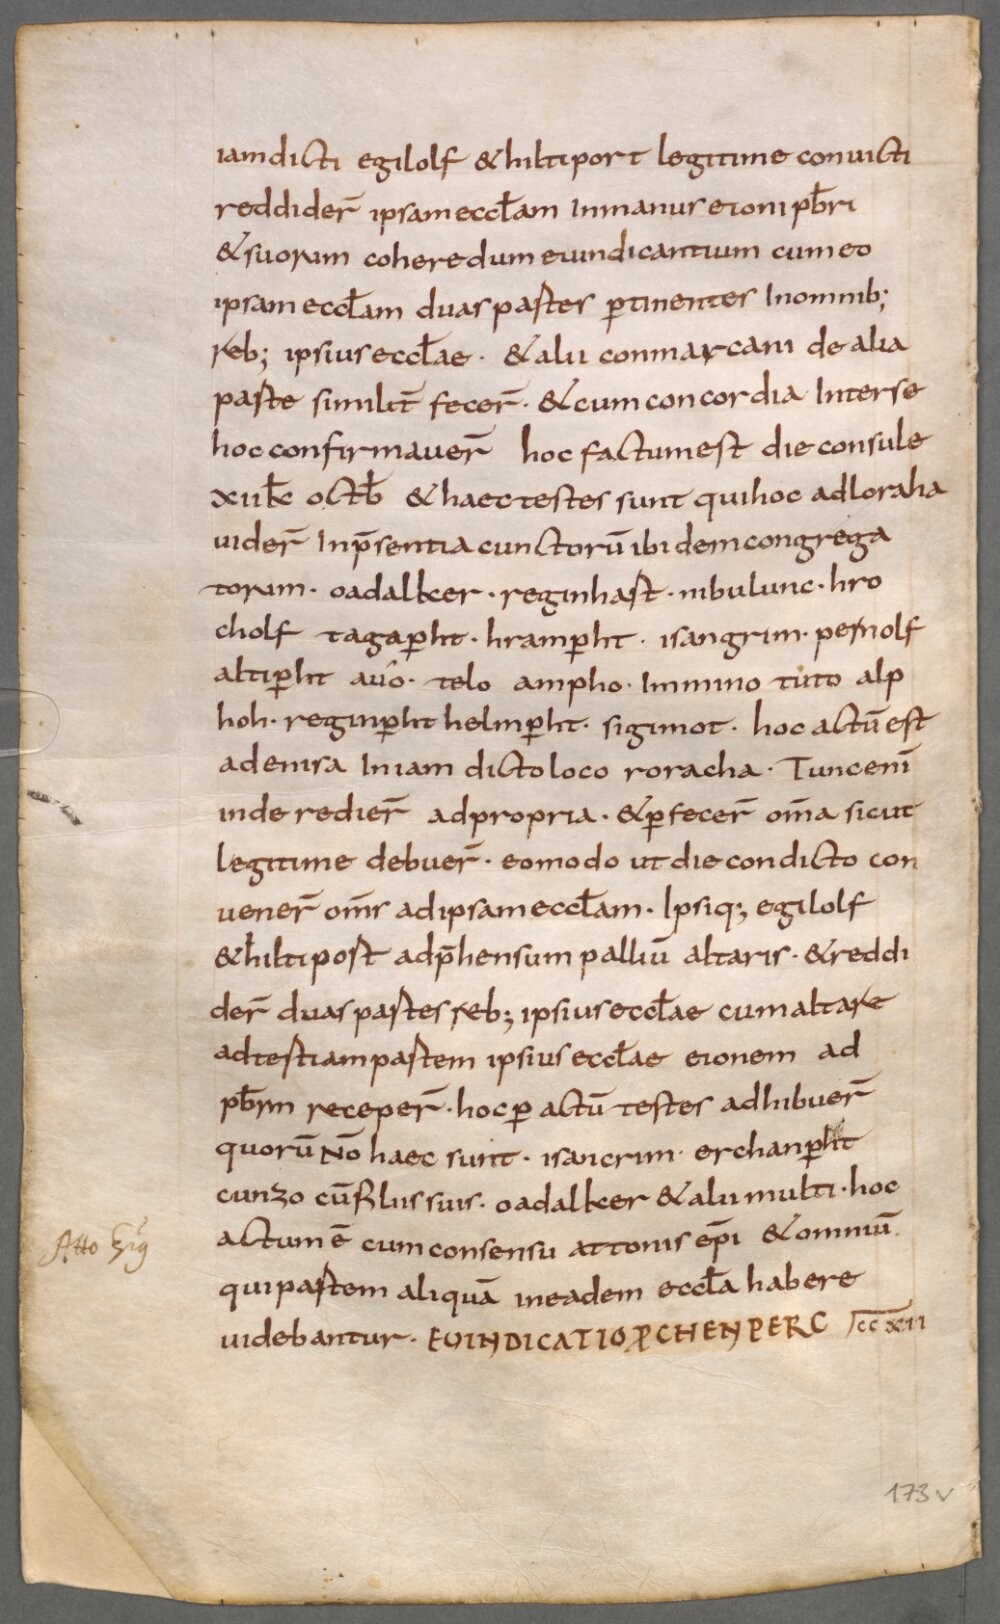 iamdicti egilolf & hiltiport legitime conuicti
reddider̄ ipsam eccłam In manus eioni pb̄ri
& suorum coheredum euindicantium cum eo
ipsam eccłam duas partes ꝑtinentes In omnib;
reb; ipsius eccłae · & alii conmarcani de alia
parte similit̄ fecer̄ · & cum concordia Inter se
hoc confirmauer̄ hoc factum est die consule
xii kł octb̄ & haec testes sunt qui hoc ad loraha
uider̄ In p̄sentia cunctorū ibidem congrega
torum · oadalker · reginhart · nibulunc · hro
cholf tagaꝑht · hramꝑht · isangrim · pernolf
altiꝑht auo · telo ampho · Immino tuto alp
hoh · reginꝑht helmꝑht · sigimot · hoc actū est
ad enisa In iam dicto loco roracha · Tunc enī
inde redier̄ ad propria · & ꝑfecer̄ om̄a sicut
legitime debuer̄ · eo modo ut die condicto con
uener̄ om̄s ad ipsam eccłam · Ipsiq; egilolf
& hiltiport adp̄hensum palliū altaris · & reddi
der̄ duas partes reb; ipsius eccłae cum altare
ad tertiam partem ipsius eccłae eionem ad
pb̄rm receper̄ · hoc ꝑactū testes adhibuer̄
quorū nō haec sunt · isancrim · erchanꝑht
cunzo cū filiis suis · oadalker & alii multi · hoc
actum ē cum consensu attonis ep̄i & omniū
qui partem aliquā in eadem eccła habere
uidebantur · EUINDICATIO PCHENPERC CCXII
Atto
173v